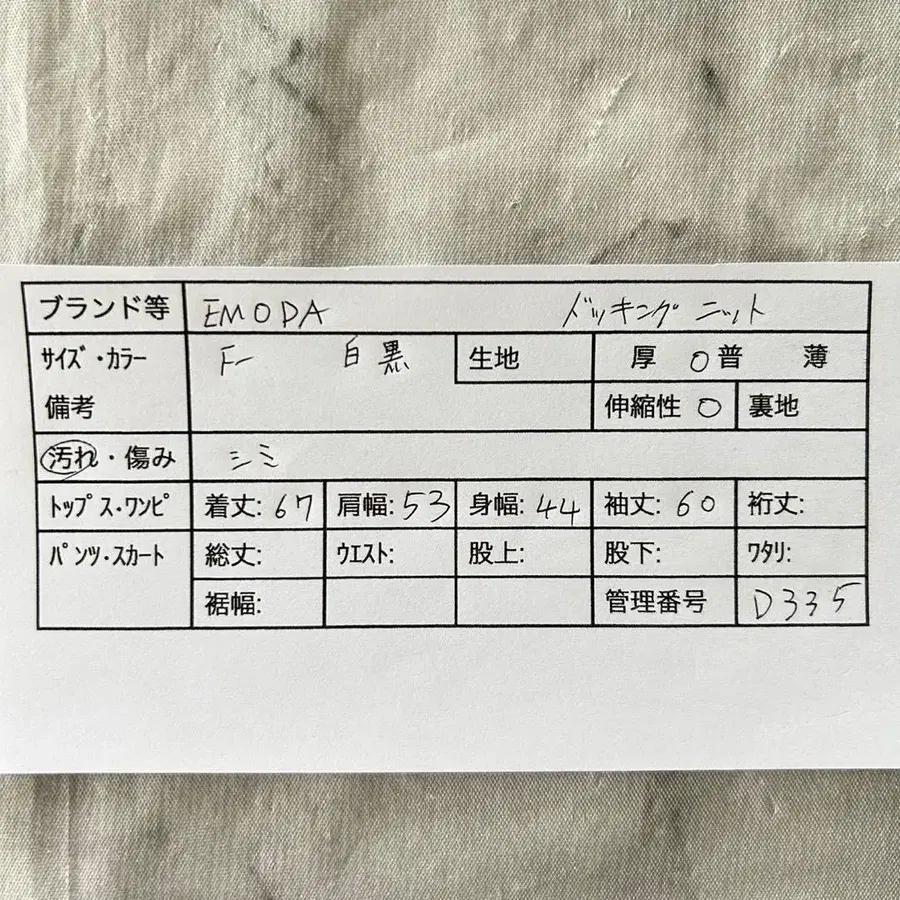 ブランド等 EMODA ドッキングニット
サイズ・カラー F 白黒 生地 厚 ○普 薄
備考 伸縮性 ○ 裏地
汚れ・傷み シミ
トップス・ワンピ 着丈: 67 肩幅: 53 身幅: 44 袖丈: 60 裄丈:
パンツ・スカート 総丈: ウエスト: 股上: 股下: ワタリ:
裾幅: 管理番号 D335